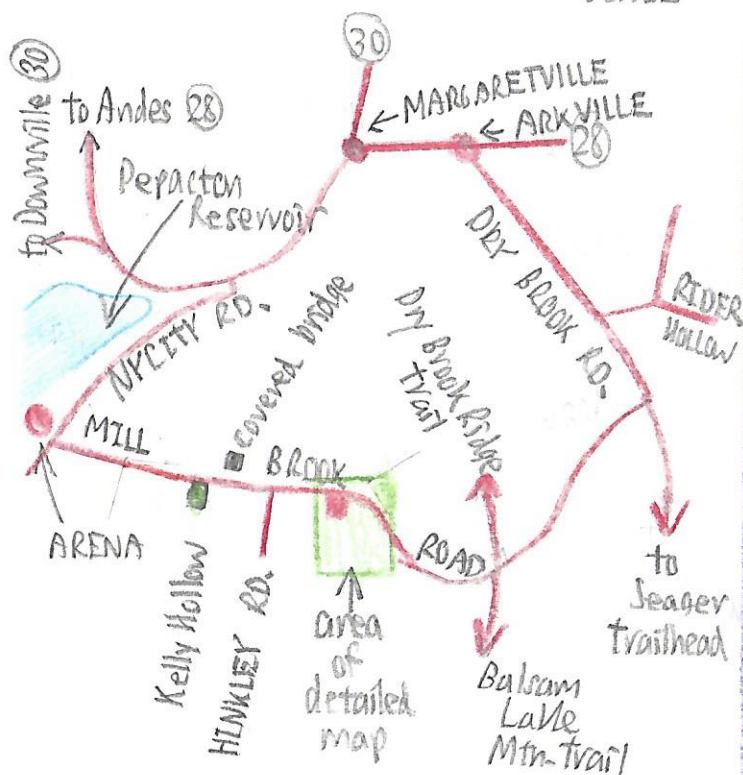 30
30
to Downsville
to Andes 28
MARGARETVILLE
ARKVILLE
28
Pepacton
Reservoir
NYCITY RD.
covered bridge
Dry Brook Ridge
trail
DRY BROOK RD.
RIDER
HOLLOW
MILL BROOK ROAD
ARENA
Kelly Hollow
HINKLEY RD.
area
of
detailed
map
Balsam
Lake
Mtn. Trail
to
Seager
trailhead